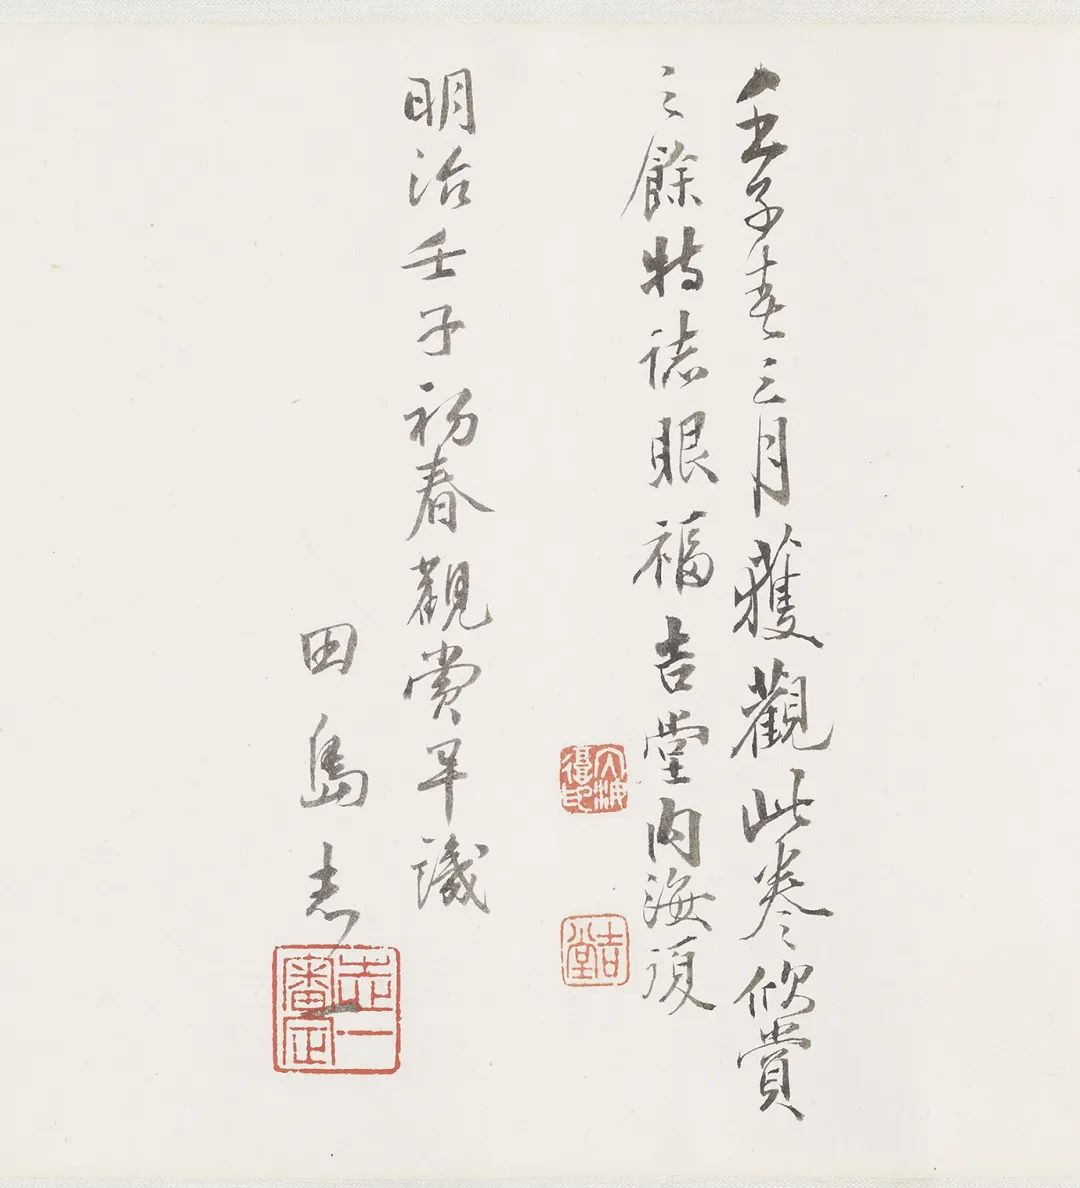 壬子春三月獲觀此卷欣賞
之餘特誌眼福吉堂内海復
吉堂
明治壬子初春觀賞早識
田島志一
志一審定